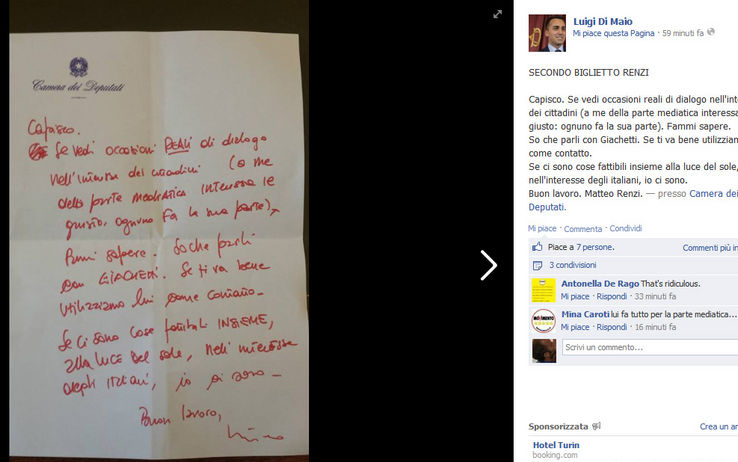 Camera dei Deputati
Capisco.
Se vedi occasioni REALI di dialogo
nell'interesse dei cittadini (a me
della parte mediatica interessa il
giusto: ognuno fa la sua parte),
Fammi sapere. So che parli
con GIACHETTI. Se ti va bene
utilizziamo lui come contatto.
Se ci sono cose fattibili INSIEME,
alla luce del sole, nell'interesse
degli italiani, io ci sono.
Buon lavoro,
Luigi Di Maio
Mi piace questa Pagina · 59 minuti fa
SECONDO BIGLIETTO RENZI
Capisco. Se vedi occasioni reali di dialogo nell'int
dei cittadini (a me della parte mediatica interessa
giusto: ognuno fa la sua parte). Fammi sapere.
So che parli con Giachetti. Se ti va bene utilizzian
come contatto.
Se ci sono cose fattibili insieme alla luce del sole,
nell'interesse degli italiani, io ci sono.
Buon lavoro. Matteo Renzi. — presso Camera dei
Deputati.
Mi piace · Commenta · Condividi
Piace a 7 persone.
Commenti più in
3 condivisioni
Antonella De Rago That's ridiculous.
Mi piace · Rispondi · 33 minuti fa
Mina Caroti lui fa tutto per la parte mediatica...
Mi piace · Rispondi · 16 minuti fa
Scrivi un commento...
Sponsorizzata
Crea un an
Hotel Turin
booking.com